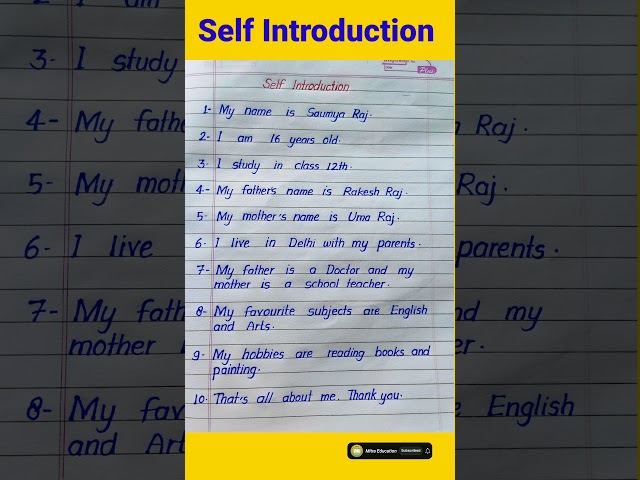 Self Introduction
Self Introduction
1- My name is Saumya Raj.
2- I am 16 years old.
3. I study in class 12th.
4- My father's name is Rakesh Raj.
5- My mother's name is Uma Raj.
6. I live in Delhi with my parents.
7- My father is a Doctor and my
mother is a school teacher.
8- My favourite subjects are English
and Arts.
9- My hobbies are reading books and
painting.
10. That's all about me. Thank you.
3. I study
4- My
Raj.
5- My
Raj.
6- I live
parents.
7- My
nd my
mother
er.
8- My fav
English
and Art
Mitva Education
Subscribed